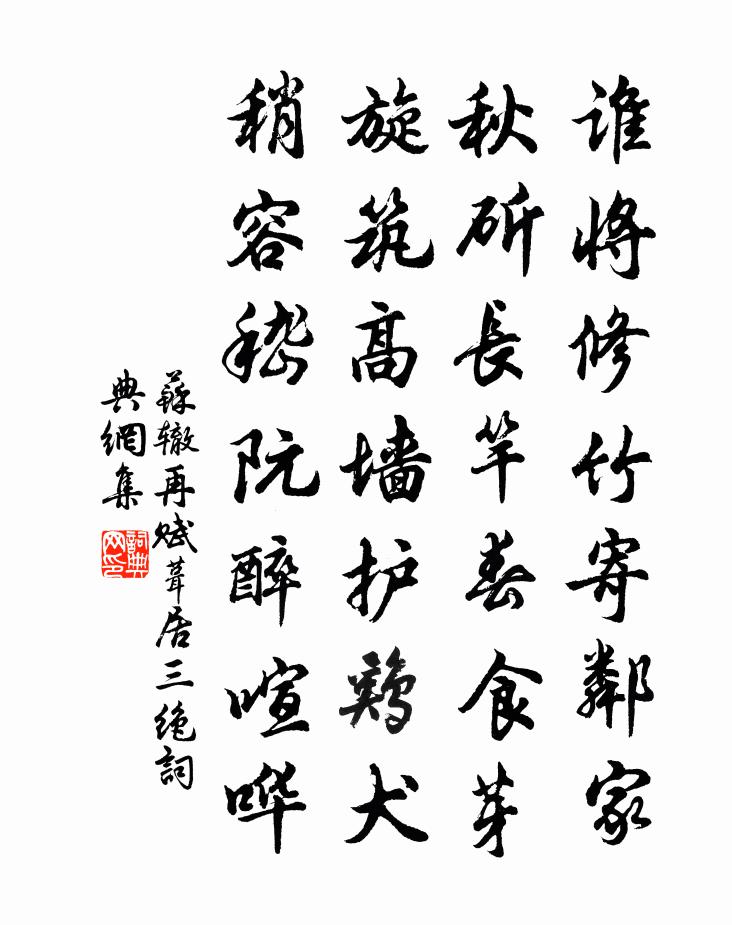 谁将修竹寄鄰家
秋斫長竿春食芽
旋筑高墙护鷄犬
稍容嵇阮醉喧哗
蘇辙再赋葺居三绝詞
典網集
詞典网印